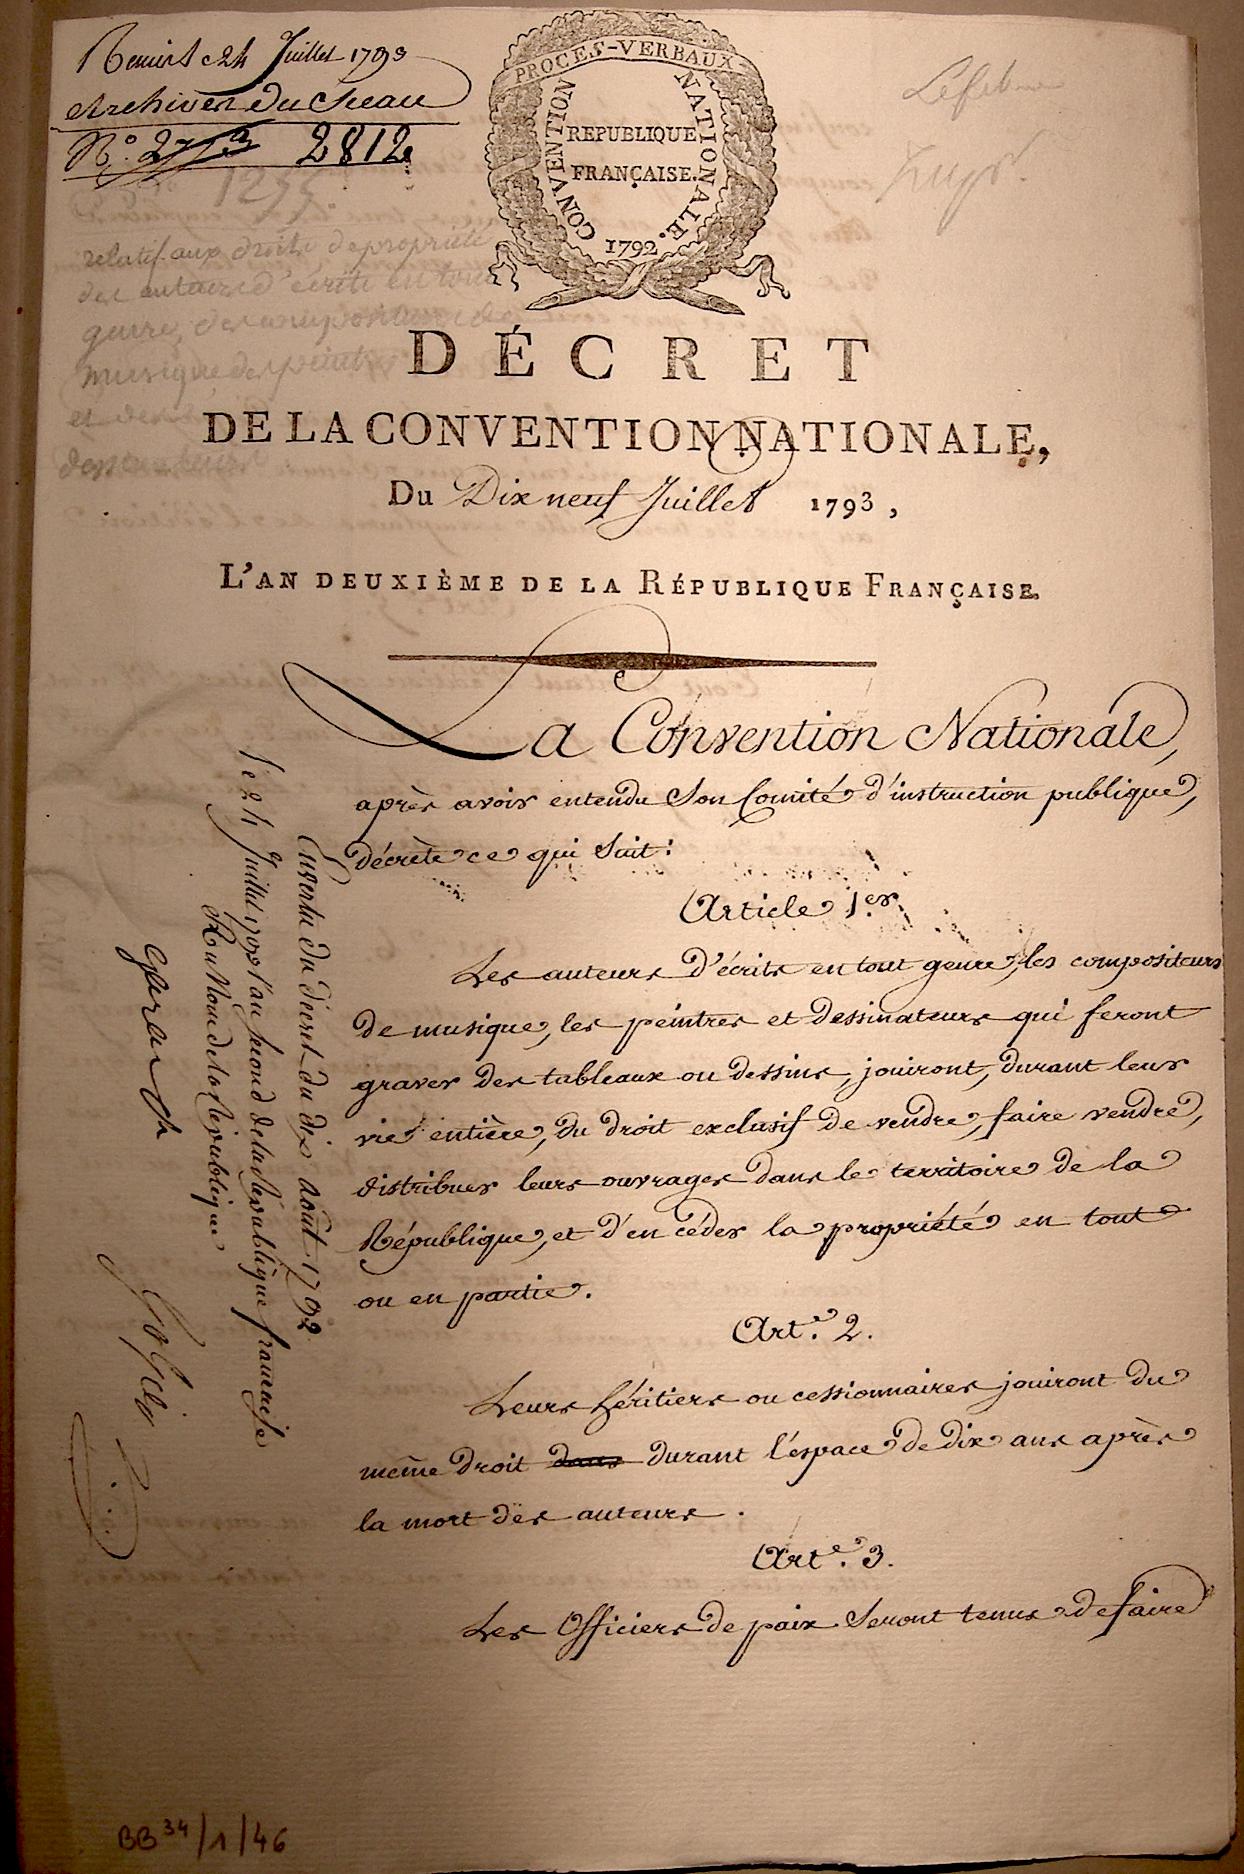 Remis le 24 Juillet 1793
Archives du Sceau
N.º 2812
PROCES-VERBAUX
CONVENTION NATIONALE.
REPUBLIQUE
FRANÇAISE.
1792.
relatif aux droits de propriété
des auteurs d'écrits en tout
genre, des compositeurs de
musique, des peintres
et des
dessinateurs
DÉCRET
DE LA CONVENTION NATIONALE,
Du Dix neuf Juillet 1793,
L'AN DEUXIÈME DE LA RÉPUBLIQUE FRANÇAISE.
La Convention Nationale,
après avoir entendu Son Comité d'instruction publique,
décrète ce qui Suit:
Article 1.er
Les auteurs d'écrits en tout genre, les compositeurs
de musique, les peintres et dessinateurs qui feront
graver des tableaux ou dessins, jouiront, durant leur
vie entière, du droit exclusif de vendre, faire vendre,
distribuer leurs ouvrages dans le territoire de la
République, et d'en céder la propriété en tout
ou en partie.
Art.e 2.
Leurs héritiers ou cessionnaires jouiront du
même droit dans durant l'espace de dix ans après
la mort des auteurs.
Art.e 3.
Les Officiers de paix Seront tenus de faire
En vertu du décret du dix août 1792
le 24 Juillet 1793 l'an second de la République francaise
Au Nom de la République
Gohier
BB 34/1/46